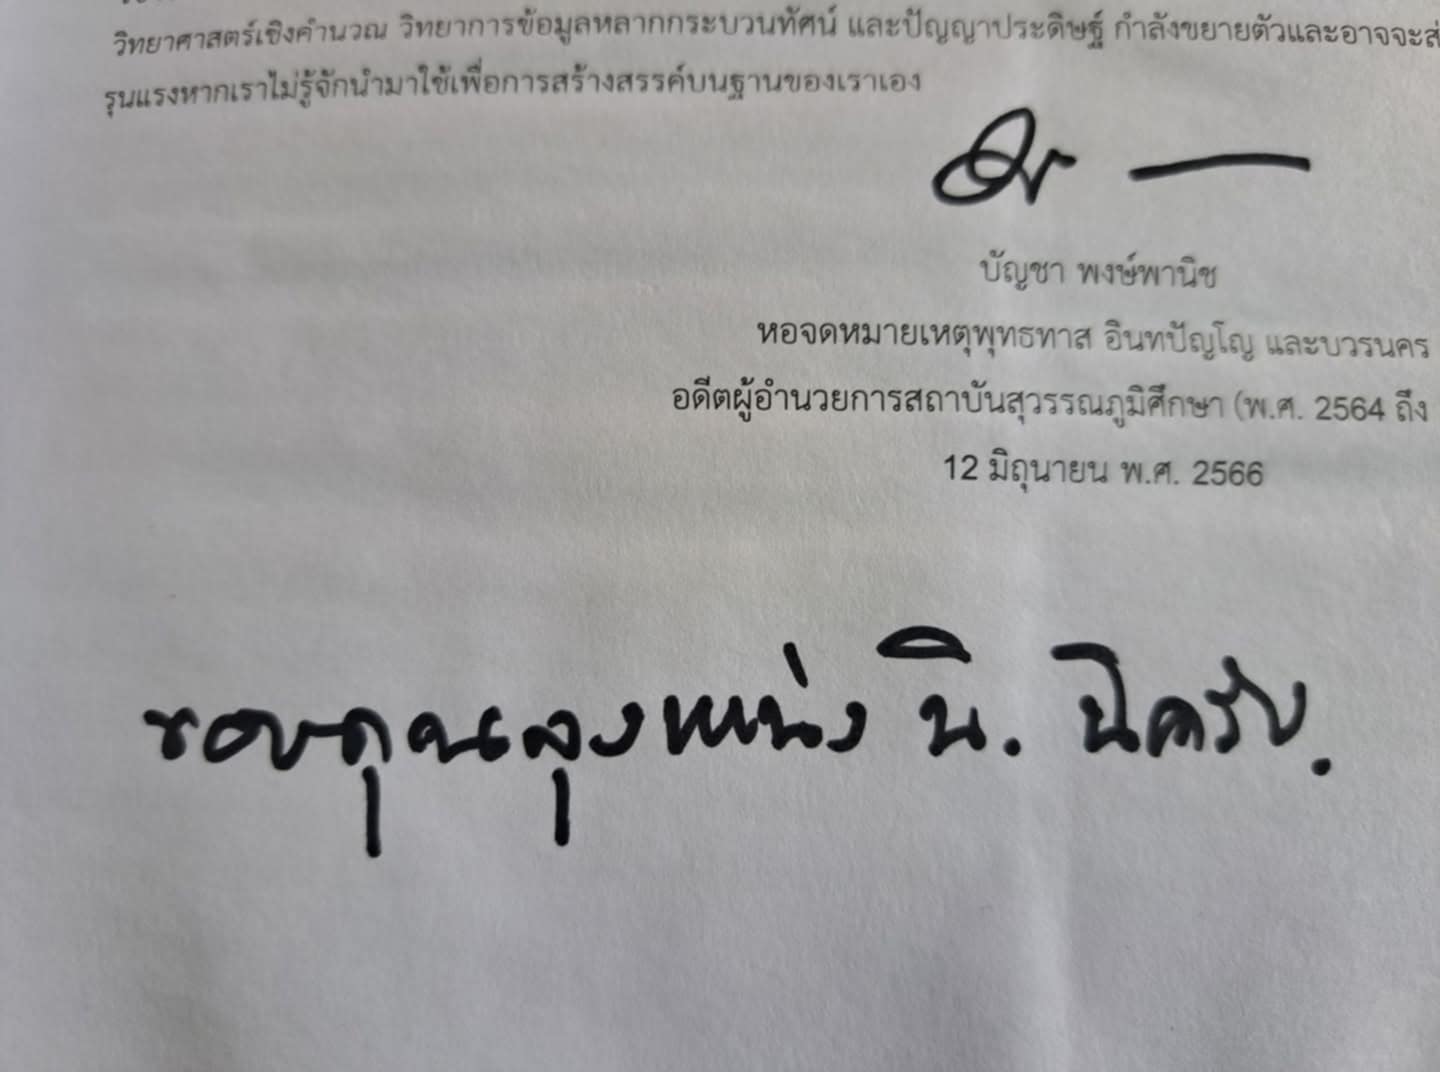 วิทยาศาสตร์เชิงคำนวณ วิทยาการข้อมูลหลากกระบวนทัศน์ และปัญญาประดิษฐ์ กำลังขยายตัวและอาจจะส่
รุนแรงหากเราไม่รู้จักนำมาใช้เพื่อการสร้างสรรค์บนฐานของเราเอง
บัญชา พงษ์พานิช
หอจดหมายเหตุพุทธทาส อินทปัญโญ และบวรนคร
อดีตผู้อำนวยการสถาบันสุวรรณภูมิศึกษา (พ.ศ. 2564 ถึง
12 มิถุนายน พ.ศ. 2566
ขอบคุณลุงหน่ง